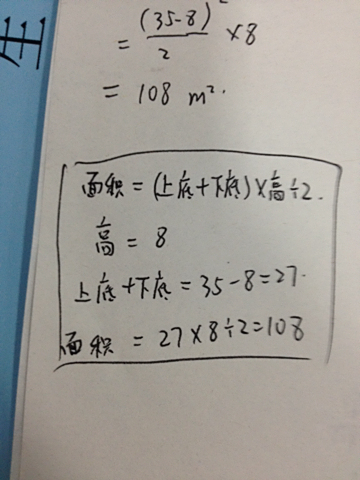 生
= (35-8)/2 × 8
= 108 m².
面积 = (上底+下底)×高÷2.
高 = 8
上底+下底 = 35-8=27.
面积 = 27×8÷2=108